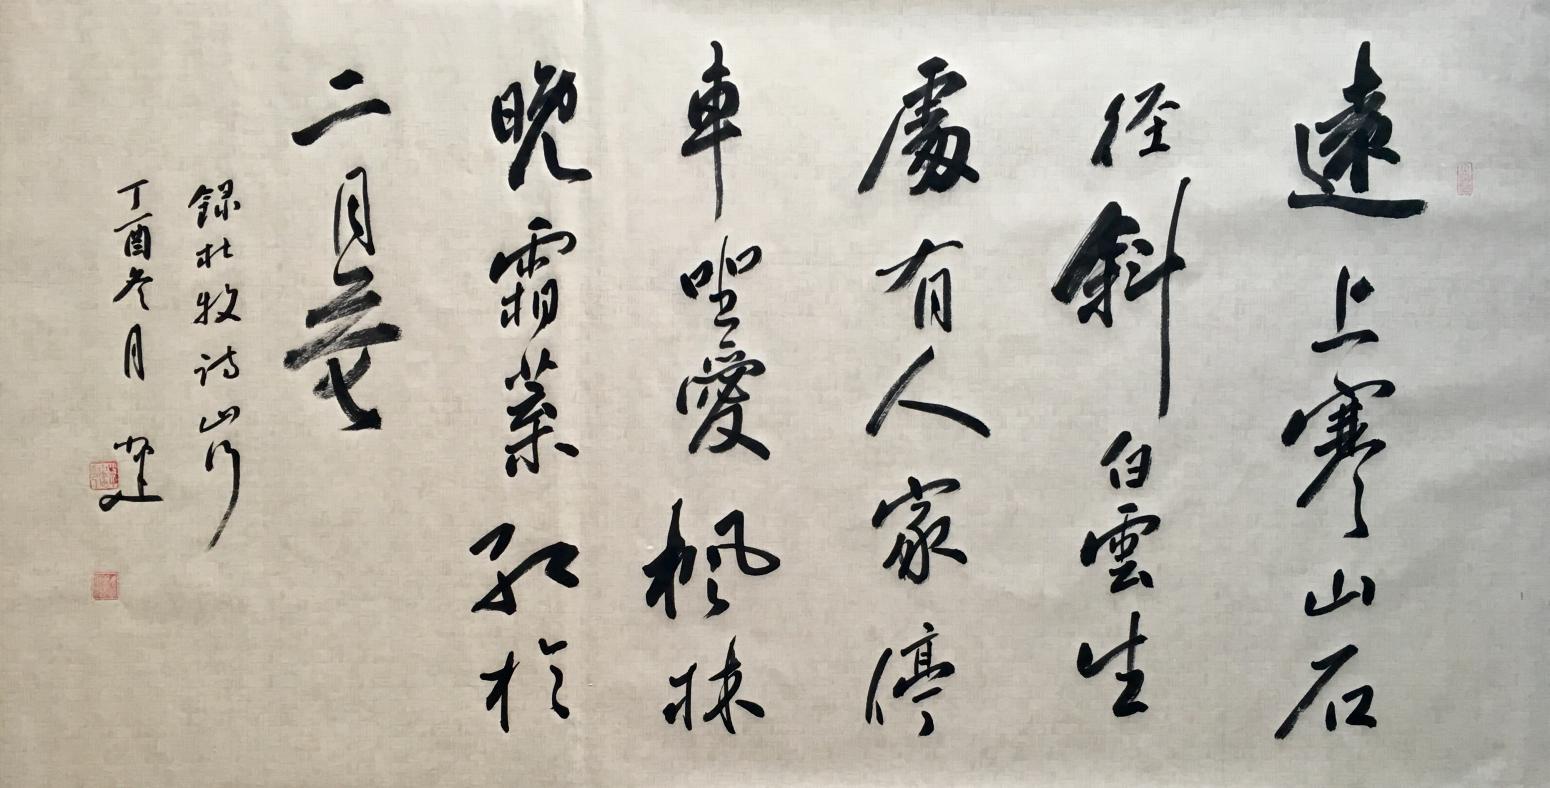 遠上寒山石
径斜白雲生
處有人家停
車坐愛楓林
晚霜葉紅於
二月花
録杜牧诗山行
丁酉冬月